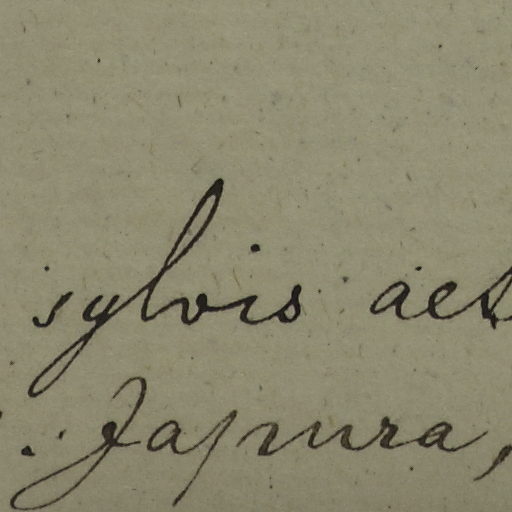 sylvis
Japura,